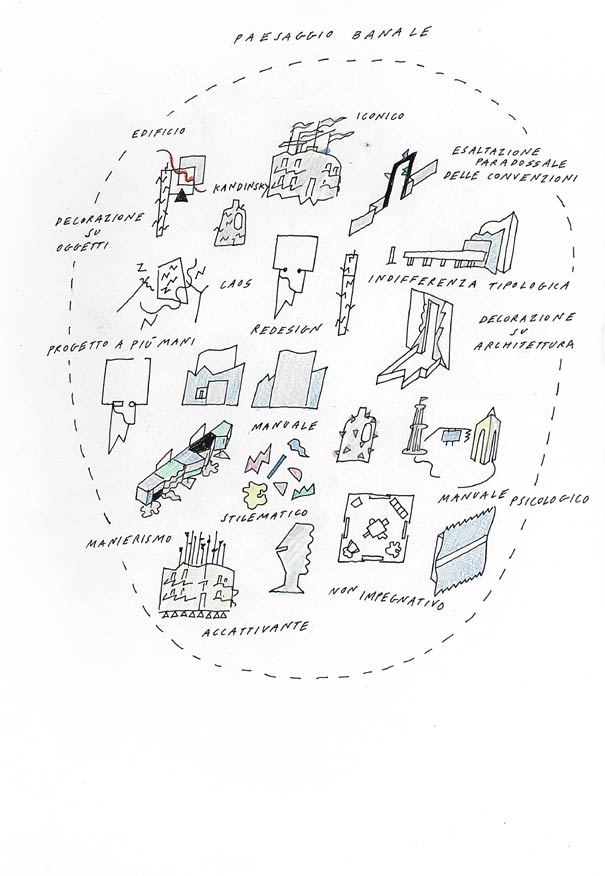 PAESAGGIO BANALE
ICONICO
EDIFICIO
ESALTAZIONE
PARADOSSALE
DELLE CONVENZIONI
KANDINSKY
DECORAZIONE
SU
OGGETTI
Z
CAOS
INDIFFERENZA TIPOLOGICA
REDESIGN
DECORAZIONE
SU
ARCHITETTURA
PROGETTO A PIÙ MANI
MANUALE
MANUALE PSICOLOGICO
STILEMATICO
MANIERISMO
NON IMPEGNATIVO
ACCATTIVANTE